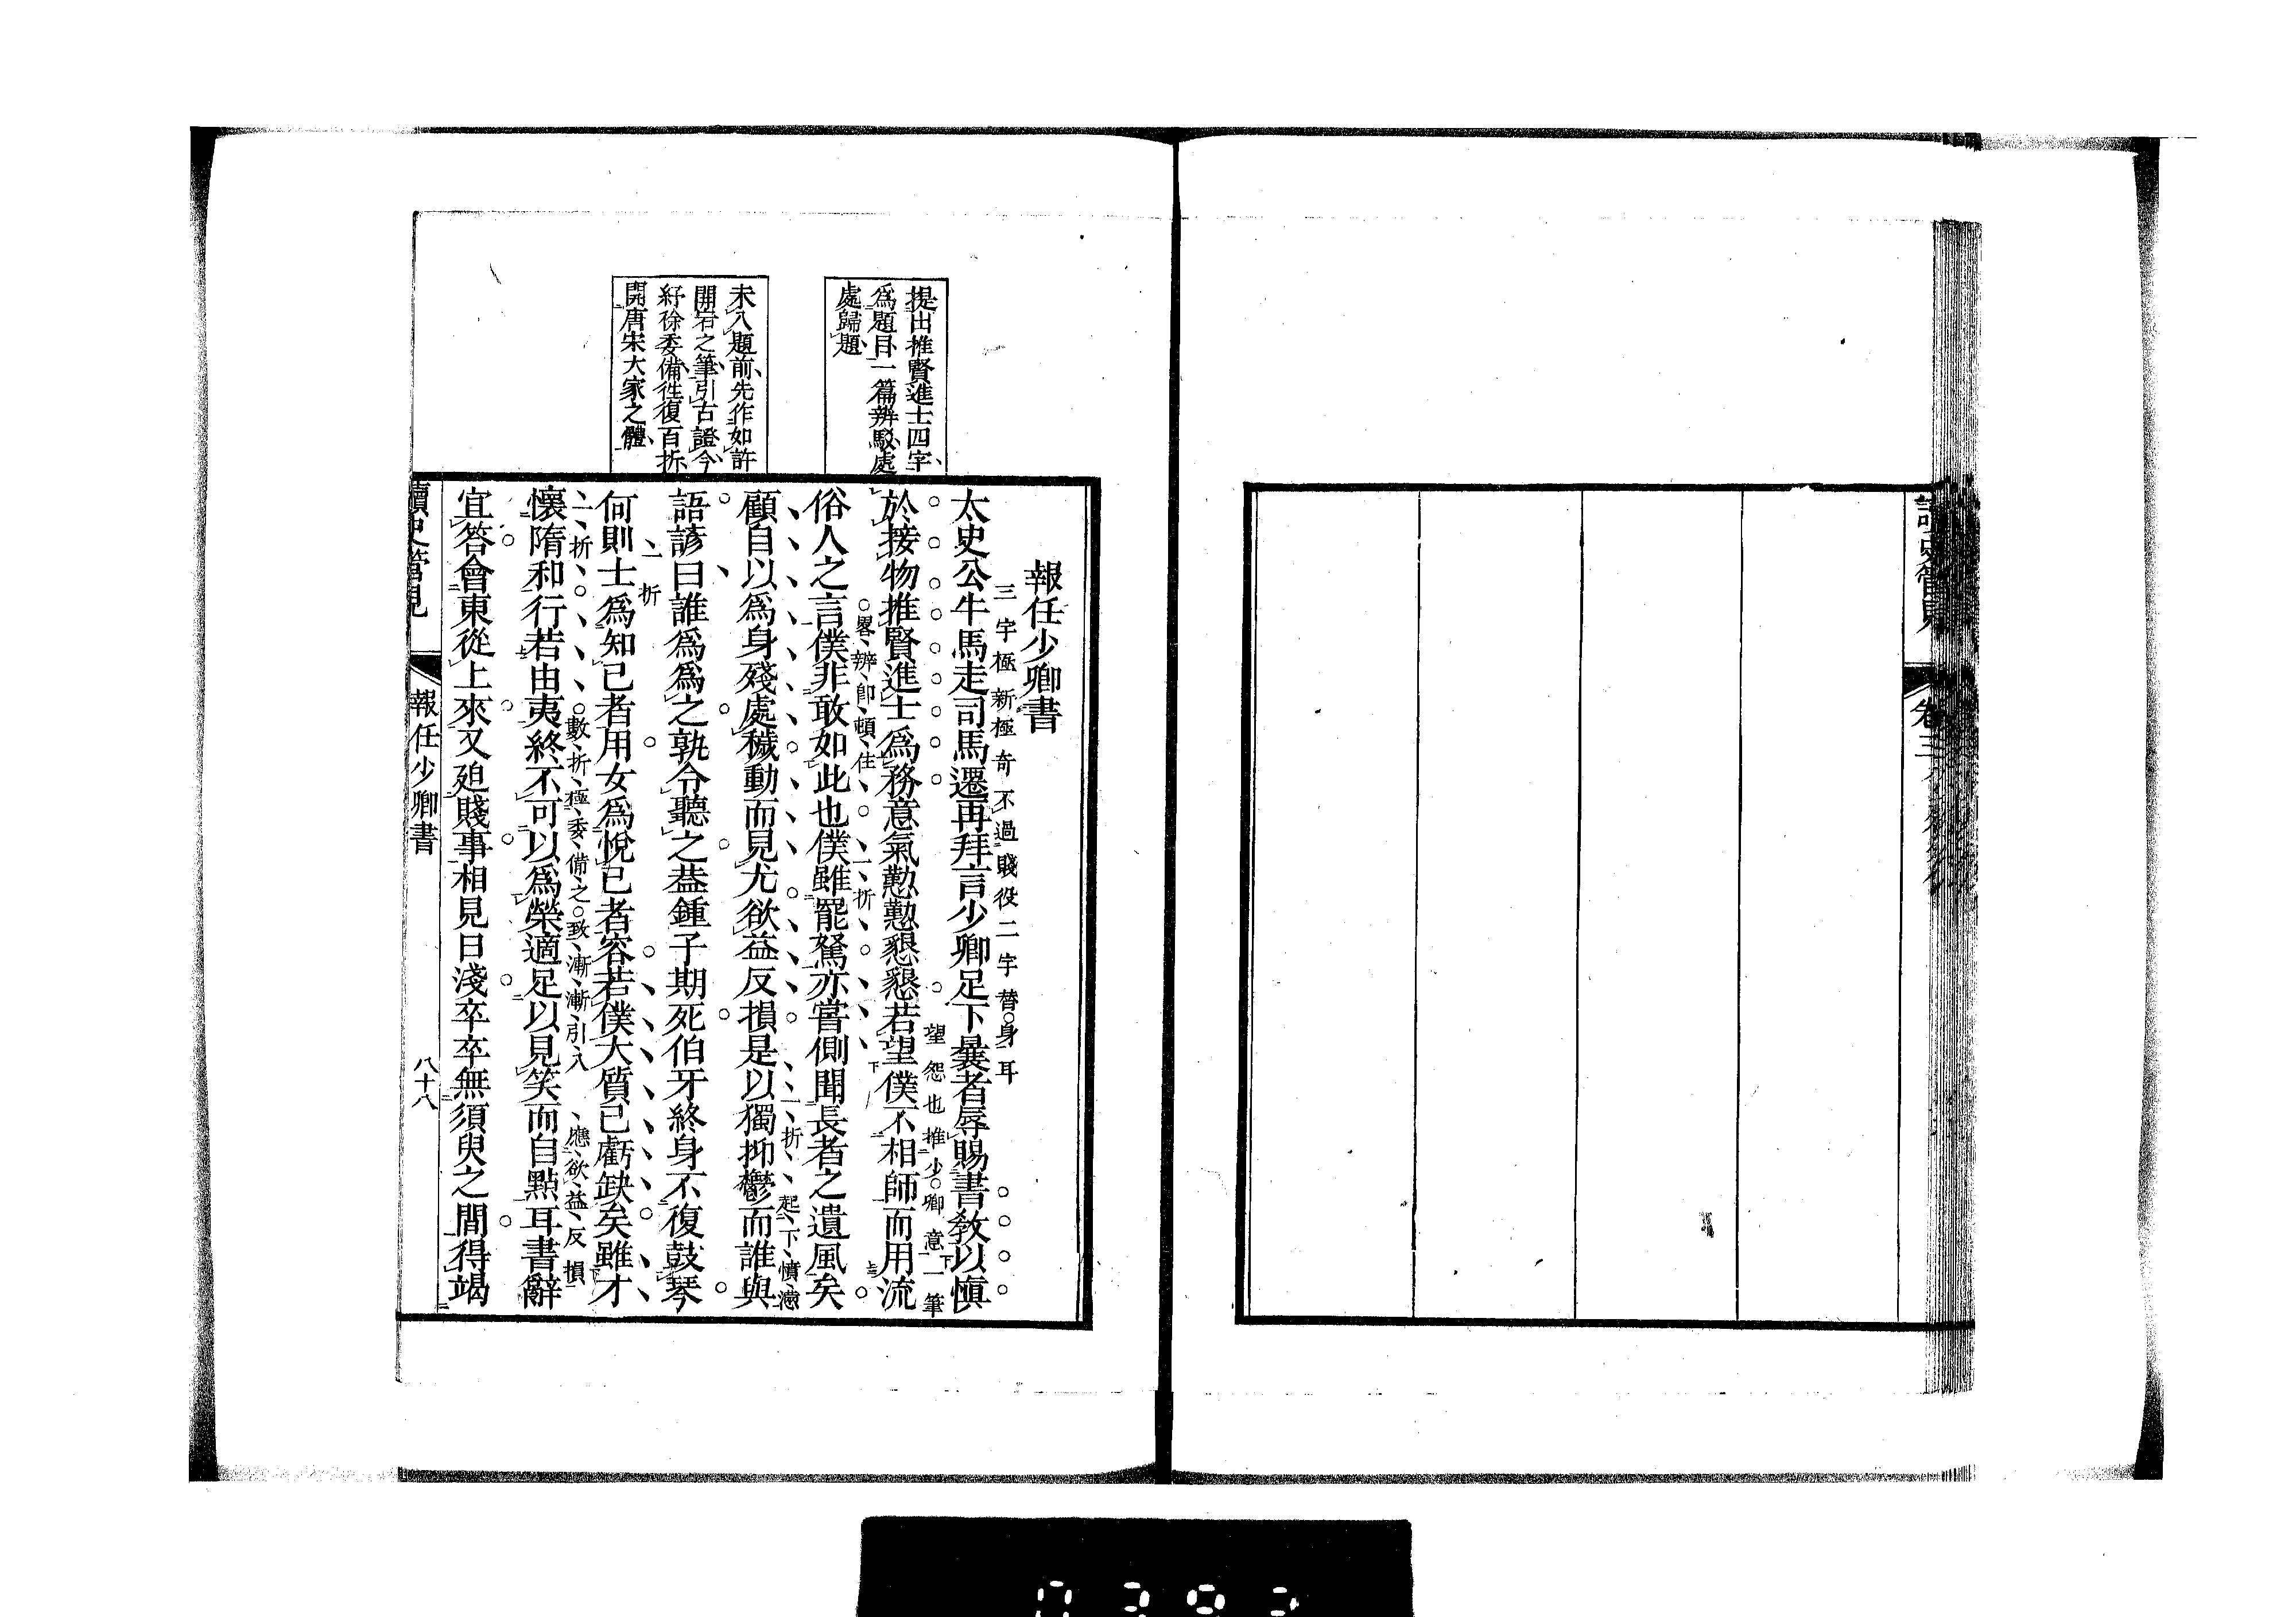 讀史管見
卷三
提出推賢進士四字
爲題目一篇辨駁處
處歸題
未入題前先作如許
開宕之筆引古證今
紆徐委備徃復百折
開唐宋大家之體
報任少卿書
三字極新極奇不過賤役二字替身耳
太史公牛馬走司馬遷再拜言少卿足下曩者辱賜書敎以愼
望怨也推少卿意一筆
於接物推賢進士爲務意氣懃懃懇懇若望僕不相師而用流
畧辨卽頓住一折
俗人之言僕非敢如此也僕雖罷駑亦嘗側聞長者之遺風矣
一折起下憤懣
顧自以爲身殘處穢動而見尤欲益反損是以獨抑鬱而誰與
語諺曰誰爲爲之孰令聽之葢鍾子期死伯牙終身不復鼓琴
一折
何則士爲知已者用女爲悅已者容若僕大質已虧缺矣雖才
一折數折極委備之致漸漸引入應欲益反損
懷隋和行若由夷終不可以爲榮適足以見笑而自點耳書辭
宜答會東從上來又廹賤事相見日淺卒卒無須臾之間得竭
讀史管見
報任少卿書
八十八